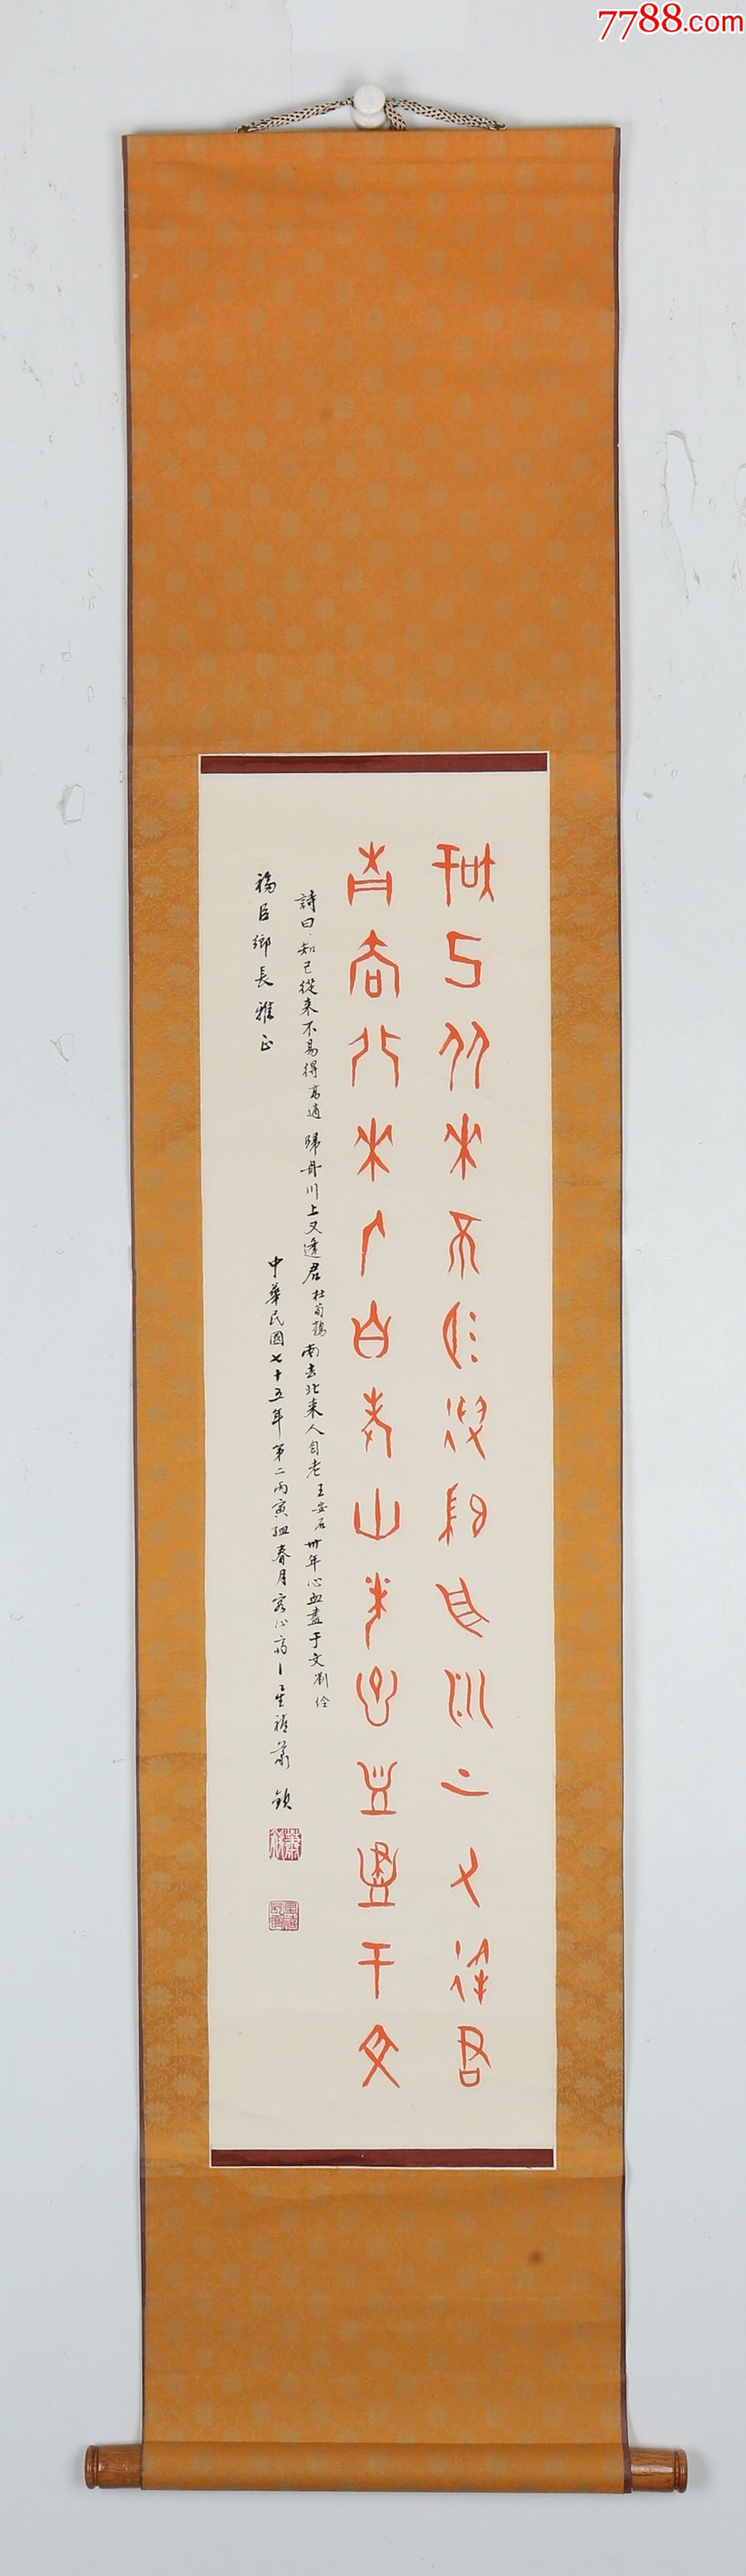 7788.com
知己從來不易得歸舟川上又逢君
南去北來人自老卅年心血盡于文
詩曰、知己從来不易得高適 歸舟川上又逢君杜荀鶴 南去北来人自老王安石 卅年心血盡于文劉佺
福臣鄉長雅正
中華民國七十五年第二丙寅
春月
蕭